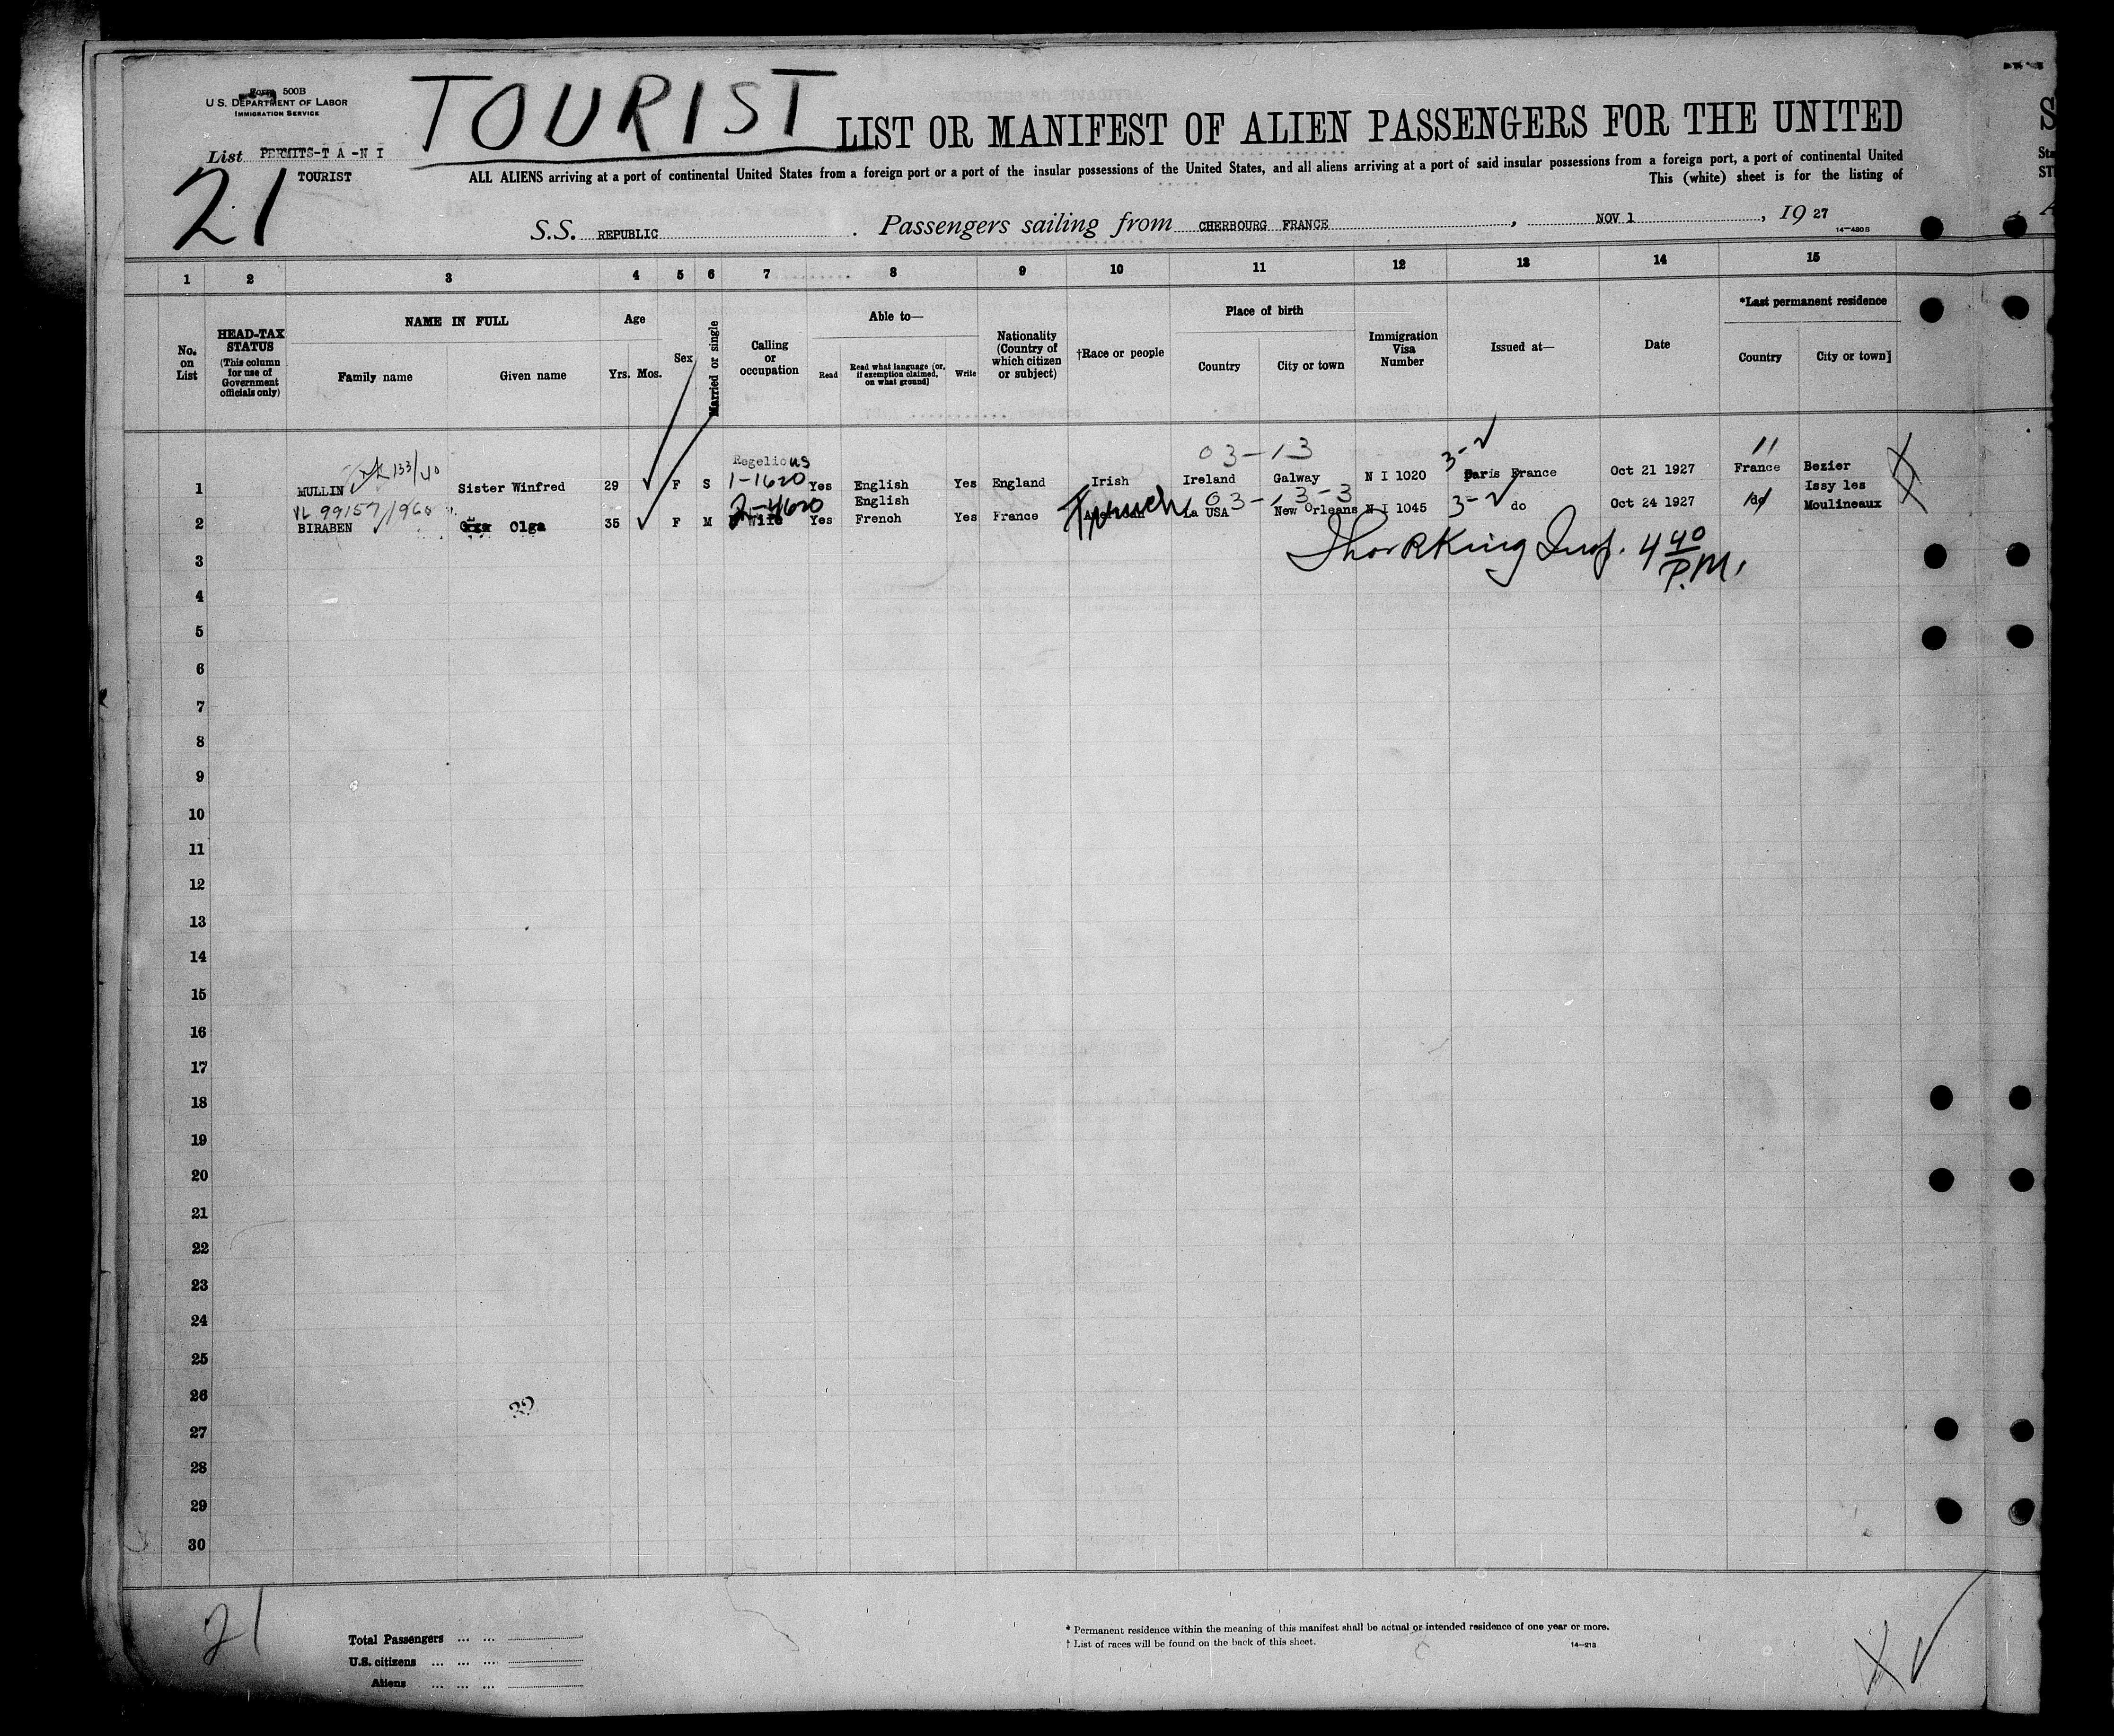 Form 500B
U. S. DEPARTMENT OF LABOR
IMMIGRATION SERVICE
TOURIST
LIST OR MANIFEST OF ALIEN PASSENGERS FOR THE UNITED
List PERMITS-T A -N I
TOURIST
21
ALL ALIENS arriving at a port of continental United States from a foreign port or a port of the insular possessions of the United States, and all aliens arriving at a port of said insular possessions from a foreign port, a port of continental United
This (white) sheet is for the listing of
S.S. REPUBLIC. Passengers sailing from CHERBOURG FRANCE, NOV 1, 19 27
14-480 B
1 2 3 4 5 6 7 8 9 10 11 12 13 14 15
No. on List
HEAD-TAX STATUS
(This column for use of Government officials only)
NAME IN FULL
Family name Given name
Age
Yrs. Mos.
Sex
Married or single
Calling or occupation
Able to—
Read Read what language (or, if exemption claimed, on what ground) Write
Nationality (Country of which citizen or subject)
†Race or people
Place of birth
Country City or town
Immigration Visa Number
Issued at—
Date
*Last permanent residence
Country City or town]
133/40 Regelious 1-1620 03-13 3-2 11
1 MULLIN Sister Winfred 29 F S Yes English Yes England Irish Ireland Galway N I 1020 Paris France Oct 21 1927 France Bezier
VL 99157/960 2-4620 English French 03-13-3 3-2 Issy les
2 BIRABEN Olga 35 F M Wife Yes French Yes France La USA New Orleans N I 1045 do Oct 24 1927 do Moulineaux
King Insp. 4 40 P.M.
3
4
5
6
7
8
9
10
11
12
13
14
15
16
17
18
19
20
21
22
23
24
25
26
27
28
29
30
21
Total Passengers ... ...
U.S. citizens ... ... ...
Aliens ... ... ...
* Permanent residence within the meaning of this manifest shall be actual or intended residence of one year or more.
† List of races will be found on the back of this sheet.
14-213